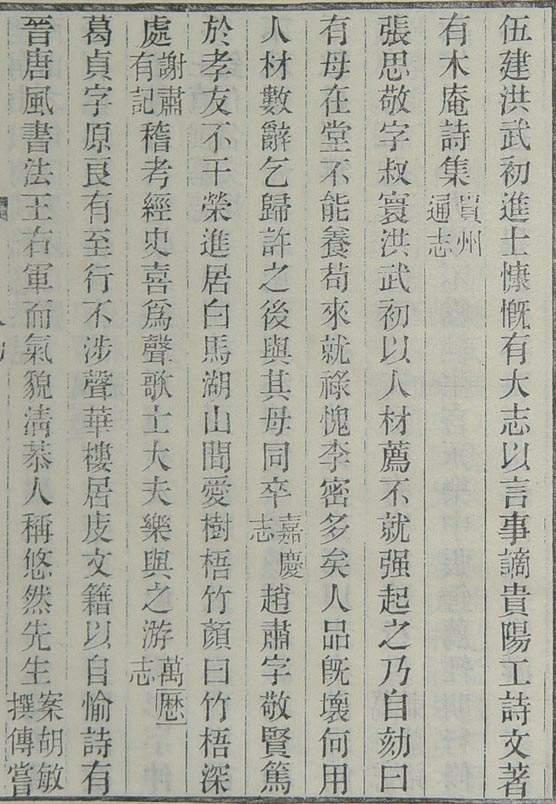 伍建洪武初進士慷慨有大志以言事謫貴陽工詩文著
有木庵詩集貴州通志
張思敬字叔寰洪武初以人材薦不就强起之乃自劾曰
有母在堂不能養苟來就祿愧李密多矣人品旣壞何用
人材數辭乞歸許之後與其母同卒嘉慶志趙肅字敬賢篤
於孝友不干榮進居白馬湖山間愛樹梧竹顏曰竹梧深
處謝肅有記稽考經史喜爲聲歌士大夫樂與之游萬曆志
葛貞字原良有至行不涉聲華樓居庋文籍以自愉詩有
晉唐風書法王右軍而氣貌淸恭人稱悠然先生案胡敏撰傳嘗